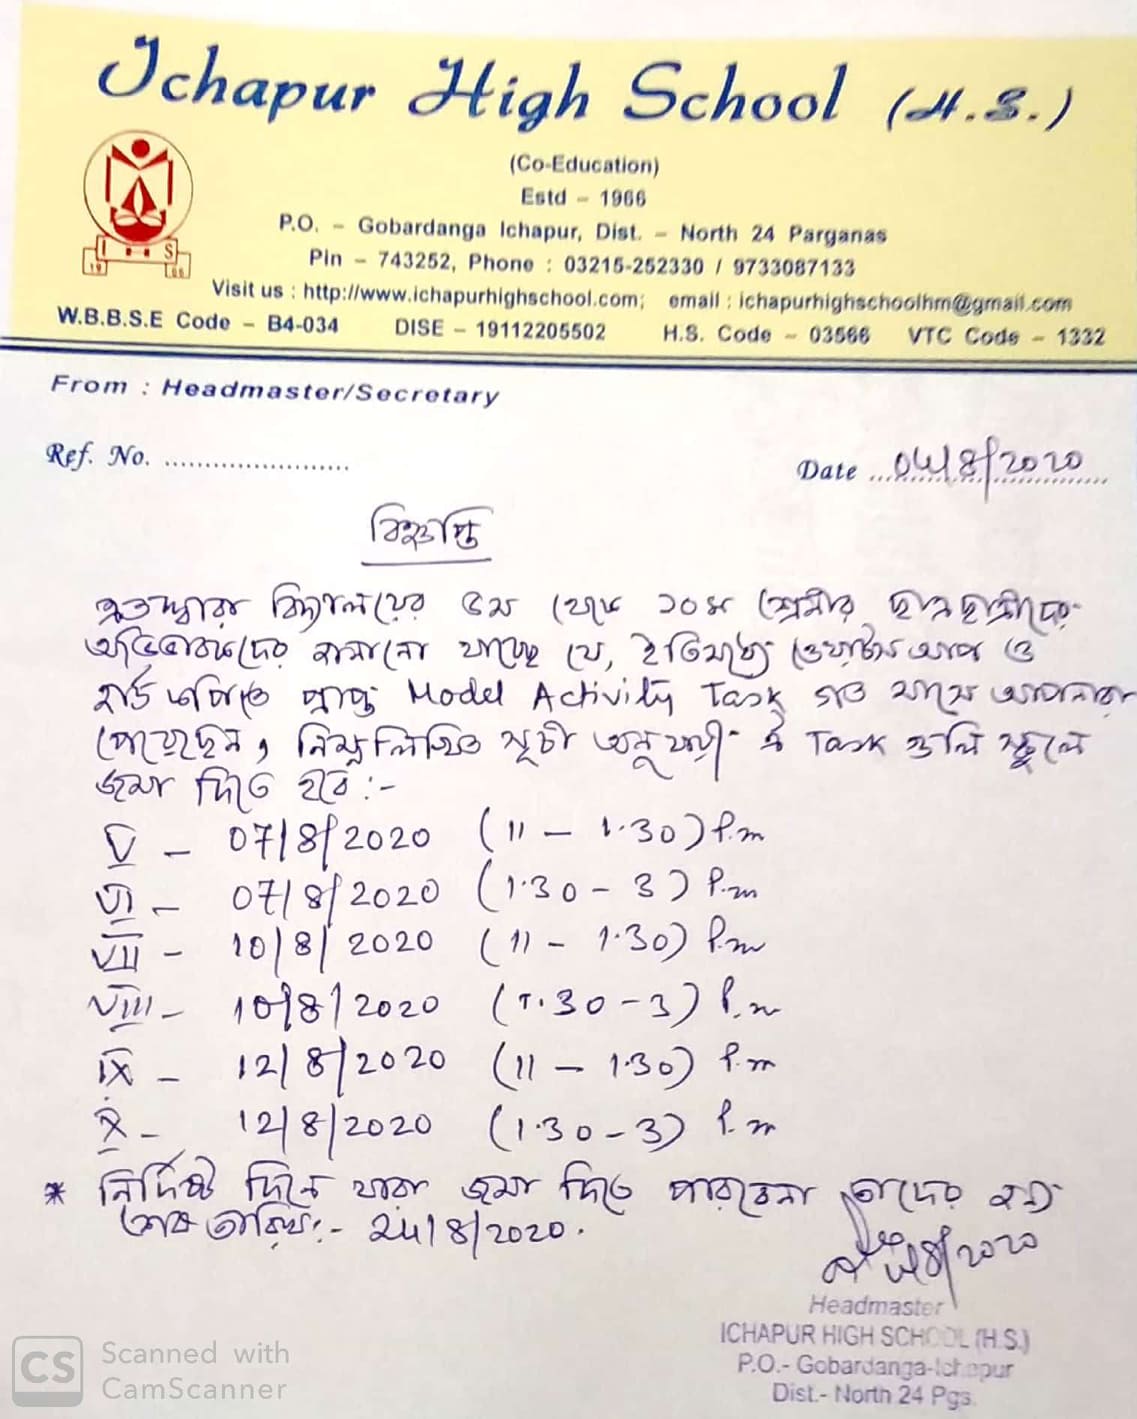 Ichapur High School (H.S.)
(Co-Education)
Estd – 1966
P.O. – Gobardanga Ichapur, Dist. – North 24 Parganas
Pin – 743252, Phone : 03215-252330 / 9733087133
Visit us : http://www.ichapurhighschool.com; email : ichapurhighschoolhm@gmail.com
W.B.B.S.E Code – B4-034 DISE – 19112205502 H.S. Code – 03566 VTC Code – 1332
I H S
19 66
From : Headmaster/Secretary
Ref. No. ........................
Date /8/2020
বিজ্ঞপ্তি
এতদ্বারা বিদ্যালয়ের ৫ম থেকে ১০ম শ্রেণীর ছাত্রছাত্রীদের
অভিভাবকদের জানানো যাচ্ছে যে, ইতিমধ্যে ওয়াটস আপ ও
হার্ড কপিতে প্রাপ্ত Model Activity Task গত মাসে আপনারা
পেয়েছেন, নিম্নলিখিত সূচী অনুযায়ী ঐ Task গুলি স্কুলে
জমা দিতে হবে :-
V – 07/8/2020 (11 – 1.30) P.m
VI – 07/8/2020 (1.30 – 3) P.m
VII – 10/8/2020 (11 – 1.30) P.m
VIII – 10/8/2020 (1.30 – 3) P.m
IX – 12/8/2020 (11 – 1.30) P.m
X – 12/8/2020 (1.30 – 3) P.m
* নির্দিষ্ট দিনে যারা জমা দিতে পারবেনা তাদের জন্য
শেষ তারিখ :- /8/2020.
Headmaster
ICHAPUR HIGH SCHOOL (H.S.)
P.O.- Gobardanga-Ichapur
Dist.- North 24 Pgs.
CS Scanned with
CamScanner